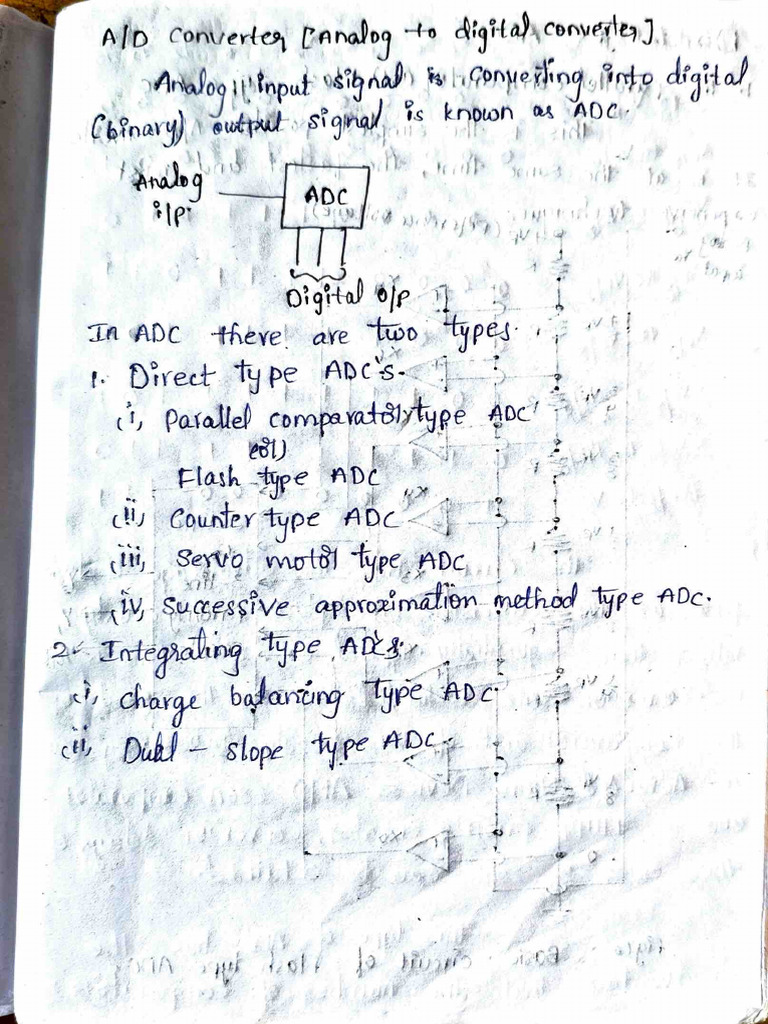 A/D Converter [Analog to digital converter]
Analog input signal is converting into digital
(binary) output signal is known as ADC.
Analog
i/p.
ADC
Digital o/p
In ADC there are two types.
1. Direct type ADC's.
(i) Parallel comparator type ADC
(or)
Flash type ADC
(ii) Counter type ADC
(iii) Servo motor type ADC
(iv) Successive approximation method type ADC.
2. Integrating type ADC's.
(i) charge balancing type ADC.
(ii) Dual - slope type ADC.